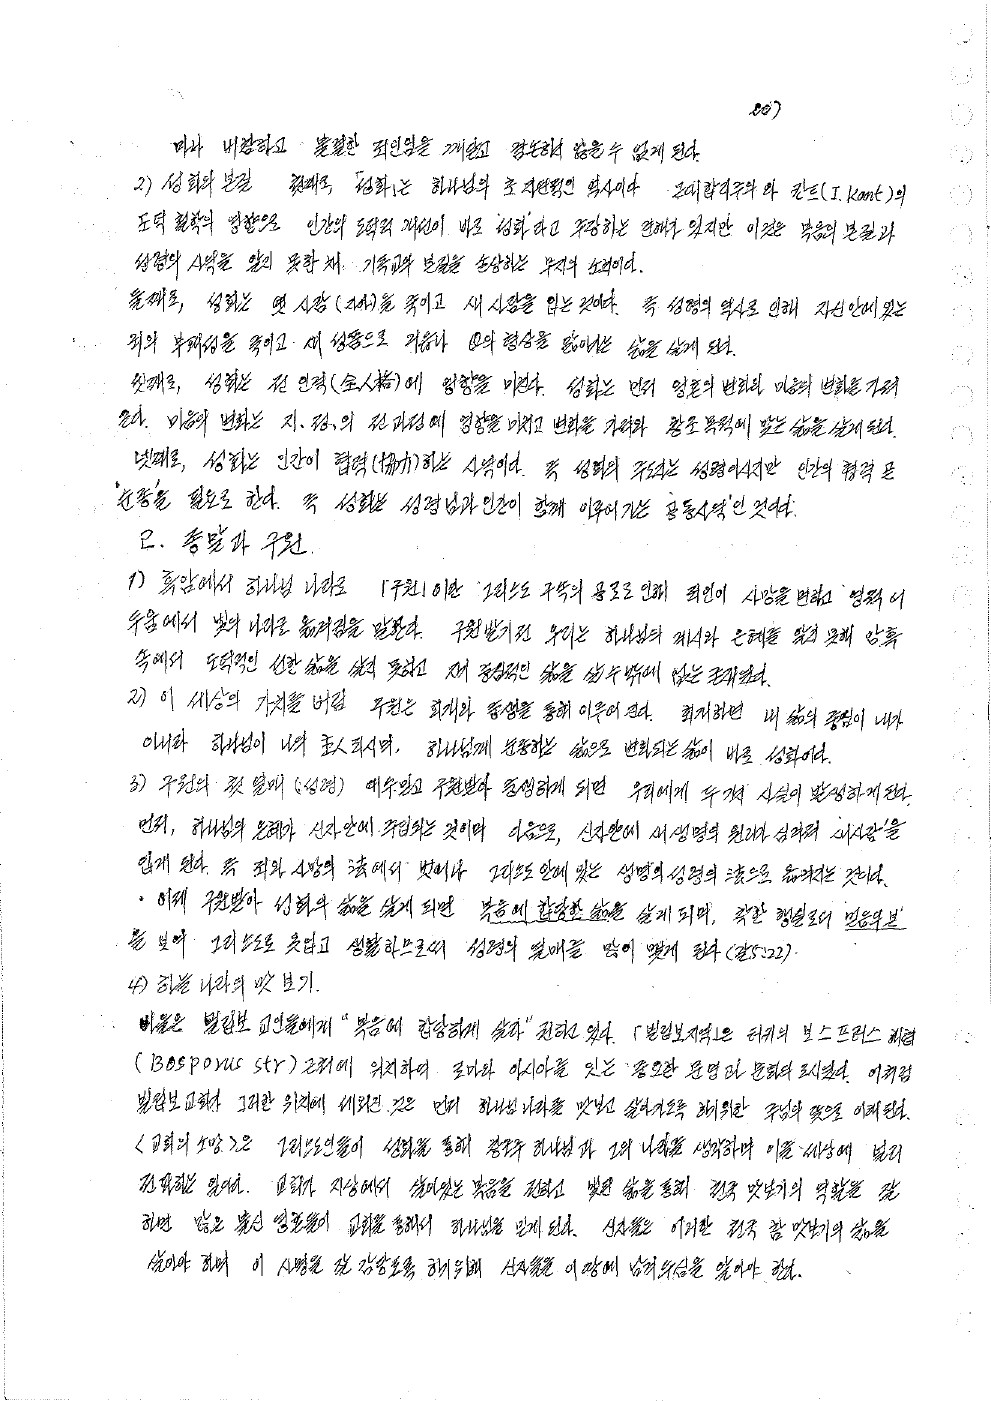 207
마다 비참하고 불결한 죄인임을 깨닫고 하지 않을 수 없게 된다.
2) 성화의 본질 첫째로 「성화」는 하나님의 초자연적인 역사이다 근대합리주의와 칸트(I. Kant)의
도덕 철학의 영향으로 인간의 도덕적 개선이 바로 '성화'라고 주장하는 견해가 있지만 이것은 복음의 본질과
성령의 사역을 알지 못한 채 기독교의 본질을 손상하는 무지의 소치이다.
둘째로, 성화는 옛 사람(자아)을 죽이고 새 사람을 입는 것이다. 즉 성령의 역사로 인해 자신 안에 있는
죄의 부패성을 죽이고 새 성품으로 거듭나 主의 형상을 닮아가는 삶을 살게 된다.
셋째로, 성화는 전 인격(全人格)에 영향을 미친다. 성화는 먼저 영혼의 변화와 마음의 변화를 가져
온다. 마음의 변화는 지、정、의 전 과정에 영향을 미치고 변화를 가져와 창조 목적에 맞는 삶을 살게 된다.
넷째로, 성화는 인간이 협력(協力)하는 사역이다. 즉 성화의 주도자는 성령이시지만 인간의 협력 곧
'순종'을 필요로 한다. 즉 성화는 성령님과 인간이 함께 이루어가는 '공동사역'인 것이다.
2. 종말과 구원.
1) 흑암에서 하나님 나라로 「구원」이란 그리스도 구속의 공로로 인해 죄인이 사망을 면하고 영적 어
두움에서 빛의 나라로 옮겨짐을 말한다. 구원받기 전 우리는 하나님의 계시와 은혜를 알지 못해 암흑
속에서 도덕적인 선한 삶을 살지 못하고 자기 중심적인 삶을 살 수 밖에 없는 존재였다.
2) 이 세상의 가치를 버림 구원은 회개와 중생을 통해 이루어 진다. 회개하면 내 삶의 중심이 내가
아니라 하나님이 나의 主人 되시며, 하나님께 순종하는 삶으로 변화되는 삶이 바로 성화이다.
3) 구원의 첫 열매(:성령) 예수믿고 구원받아 중생하게 되면 우리에게 두 가지 사실이 발생하게 된다.
먼저, 하나님의 은혜가 신자안에 주입되는 것이며 다음으로, 신자안에 새 생명의 원리가 심겨져 '새사람'을
입게 된다. 즉 죄와 사망의 法에서 벗어나 그리스도 안에 있는 생명의 성령의 法으로 옮겨지는 것이다.
· 이제 구원받아 성화의 삶을 살게 되면 복음에 합당한 삶을 살게 되며, 착한 행실로서 '믿음의 본'
을 보여 그리스도로 옷입고 생활하므로써 성령의 열매를 많이 맺게 된다(갈5:22).
4) 하늘 나라의 맛 보기.
바울은 빌립보 교인들에게 "복음에 합당하게 살라" 전하고 있다. 「빌립보지역」은 터키의 보스프러스 해협
(Bosporus str) 근처에 위치하여 로마와 아시아를 잇는 중요한 문명과 문화의 도시였다. 이처럼
빌립보교회가 그러한 위치에 세워진 것은 먼저 하나님 나라를 맛보고 살아가도록 하기위한 주님의 뜻으로 이해된다.
<교회의 소망>은 그리스도인들이 성화를 통해 창조주 하나님과 그의 나라를 생각하며 이를 세상에 널리
전파하는 일이다. 교회가 지상에서 살아있는 복음을 전하고 삶을 통해 천국 맛보기의 역할을 잘
하면 많은 불신 영혼들이 교회를 통해서 하나님을 믿게 된다. 신자들은 이러한 천국 참 맛보기의 삶을
살아야 하며 이 사명을 잘 감당토록 하기위해 신자들을 이 땅에 남겨두심을 알아야 한다.